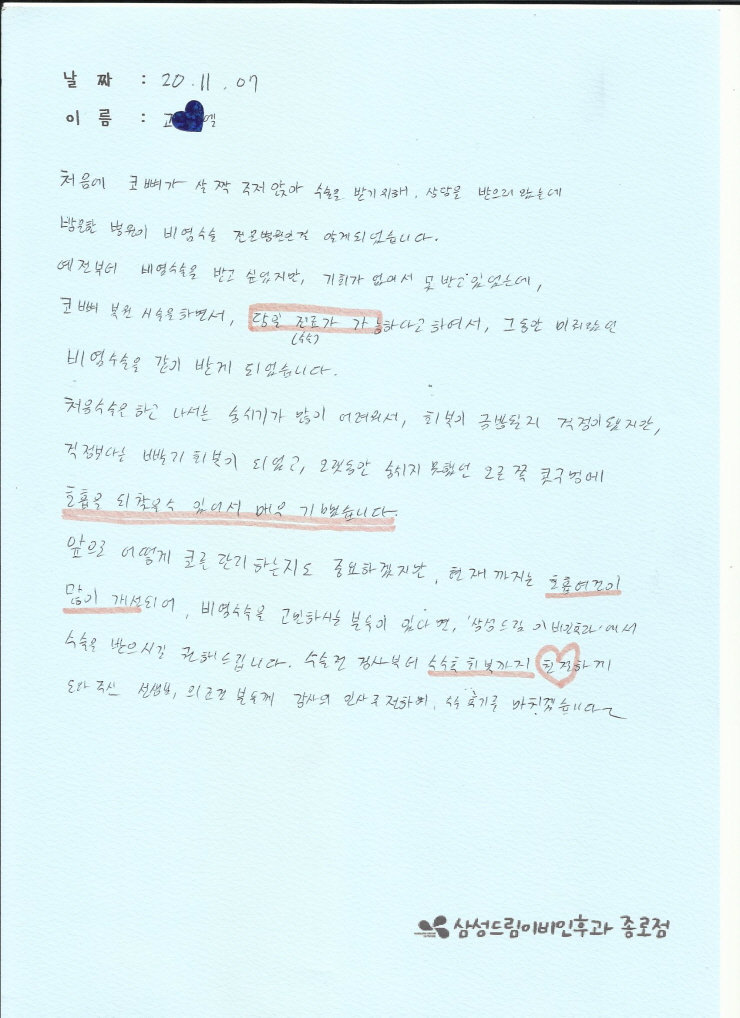 날 짜 : 20.11.07
이 름 : 고 엘
처음에 코뼈가 살짝 주저앉아 수술을 받기위해, 상담을 받으러 왔는데
방문한 병원이 비염수술 전문병원인걸 알게되었습니다.
예전부터 비염수술을 받고 싶었지만, 기회가 없어서 못 받고 있었는데,
코뼈 복원 시술을하면서, 당일 진료가 가능하다고 하여서, 그동안 미뤄왔던
(수술)
비염수술을 같이 받게 되었습니다.
처음수술은 하고 나서는 숨쉬기가 많이 어려워서, 회복이 금방될지 걱정이됐지만,
걱정보다는 빠르게 회복이 되었고, 오랫동안 숨쉬지 못했던 오른 쪽 콧구멍에
호흡을 되찾을수 있어서 매우 기뻤습니다.
앞으로 어떻게 코를 관리 하는지도 중요하겠지만, 현재 까지는 호흡여건이
많이 개선되어, 비염수술을 고민하시는 분들이 있다면, '삼성드림이비인후과'에서
수술을 받으시길 권해드립니다. 수술전 검사부터 수술후 회복까지 친절하게
도와주신 선생님, 의료진 분들께 감사의 인사를 전하며, 수술 후기를 마치겠습니다~
삼성드림이비인후과 종로점